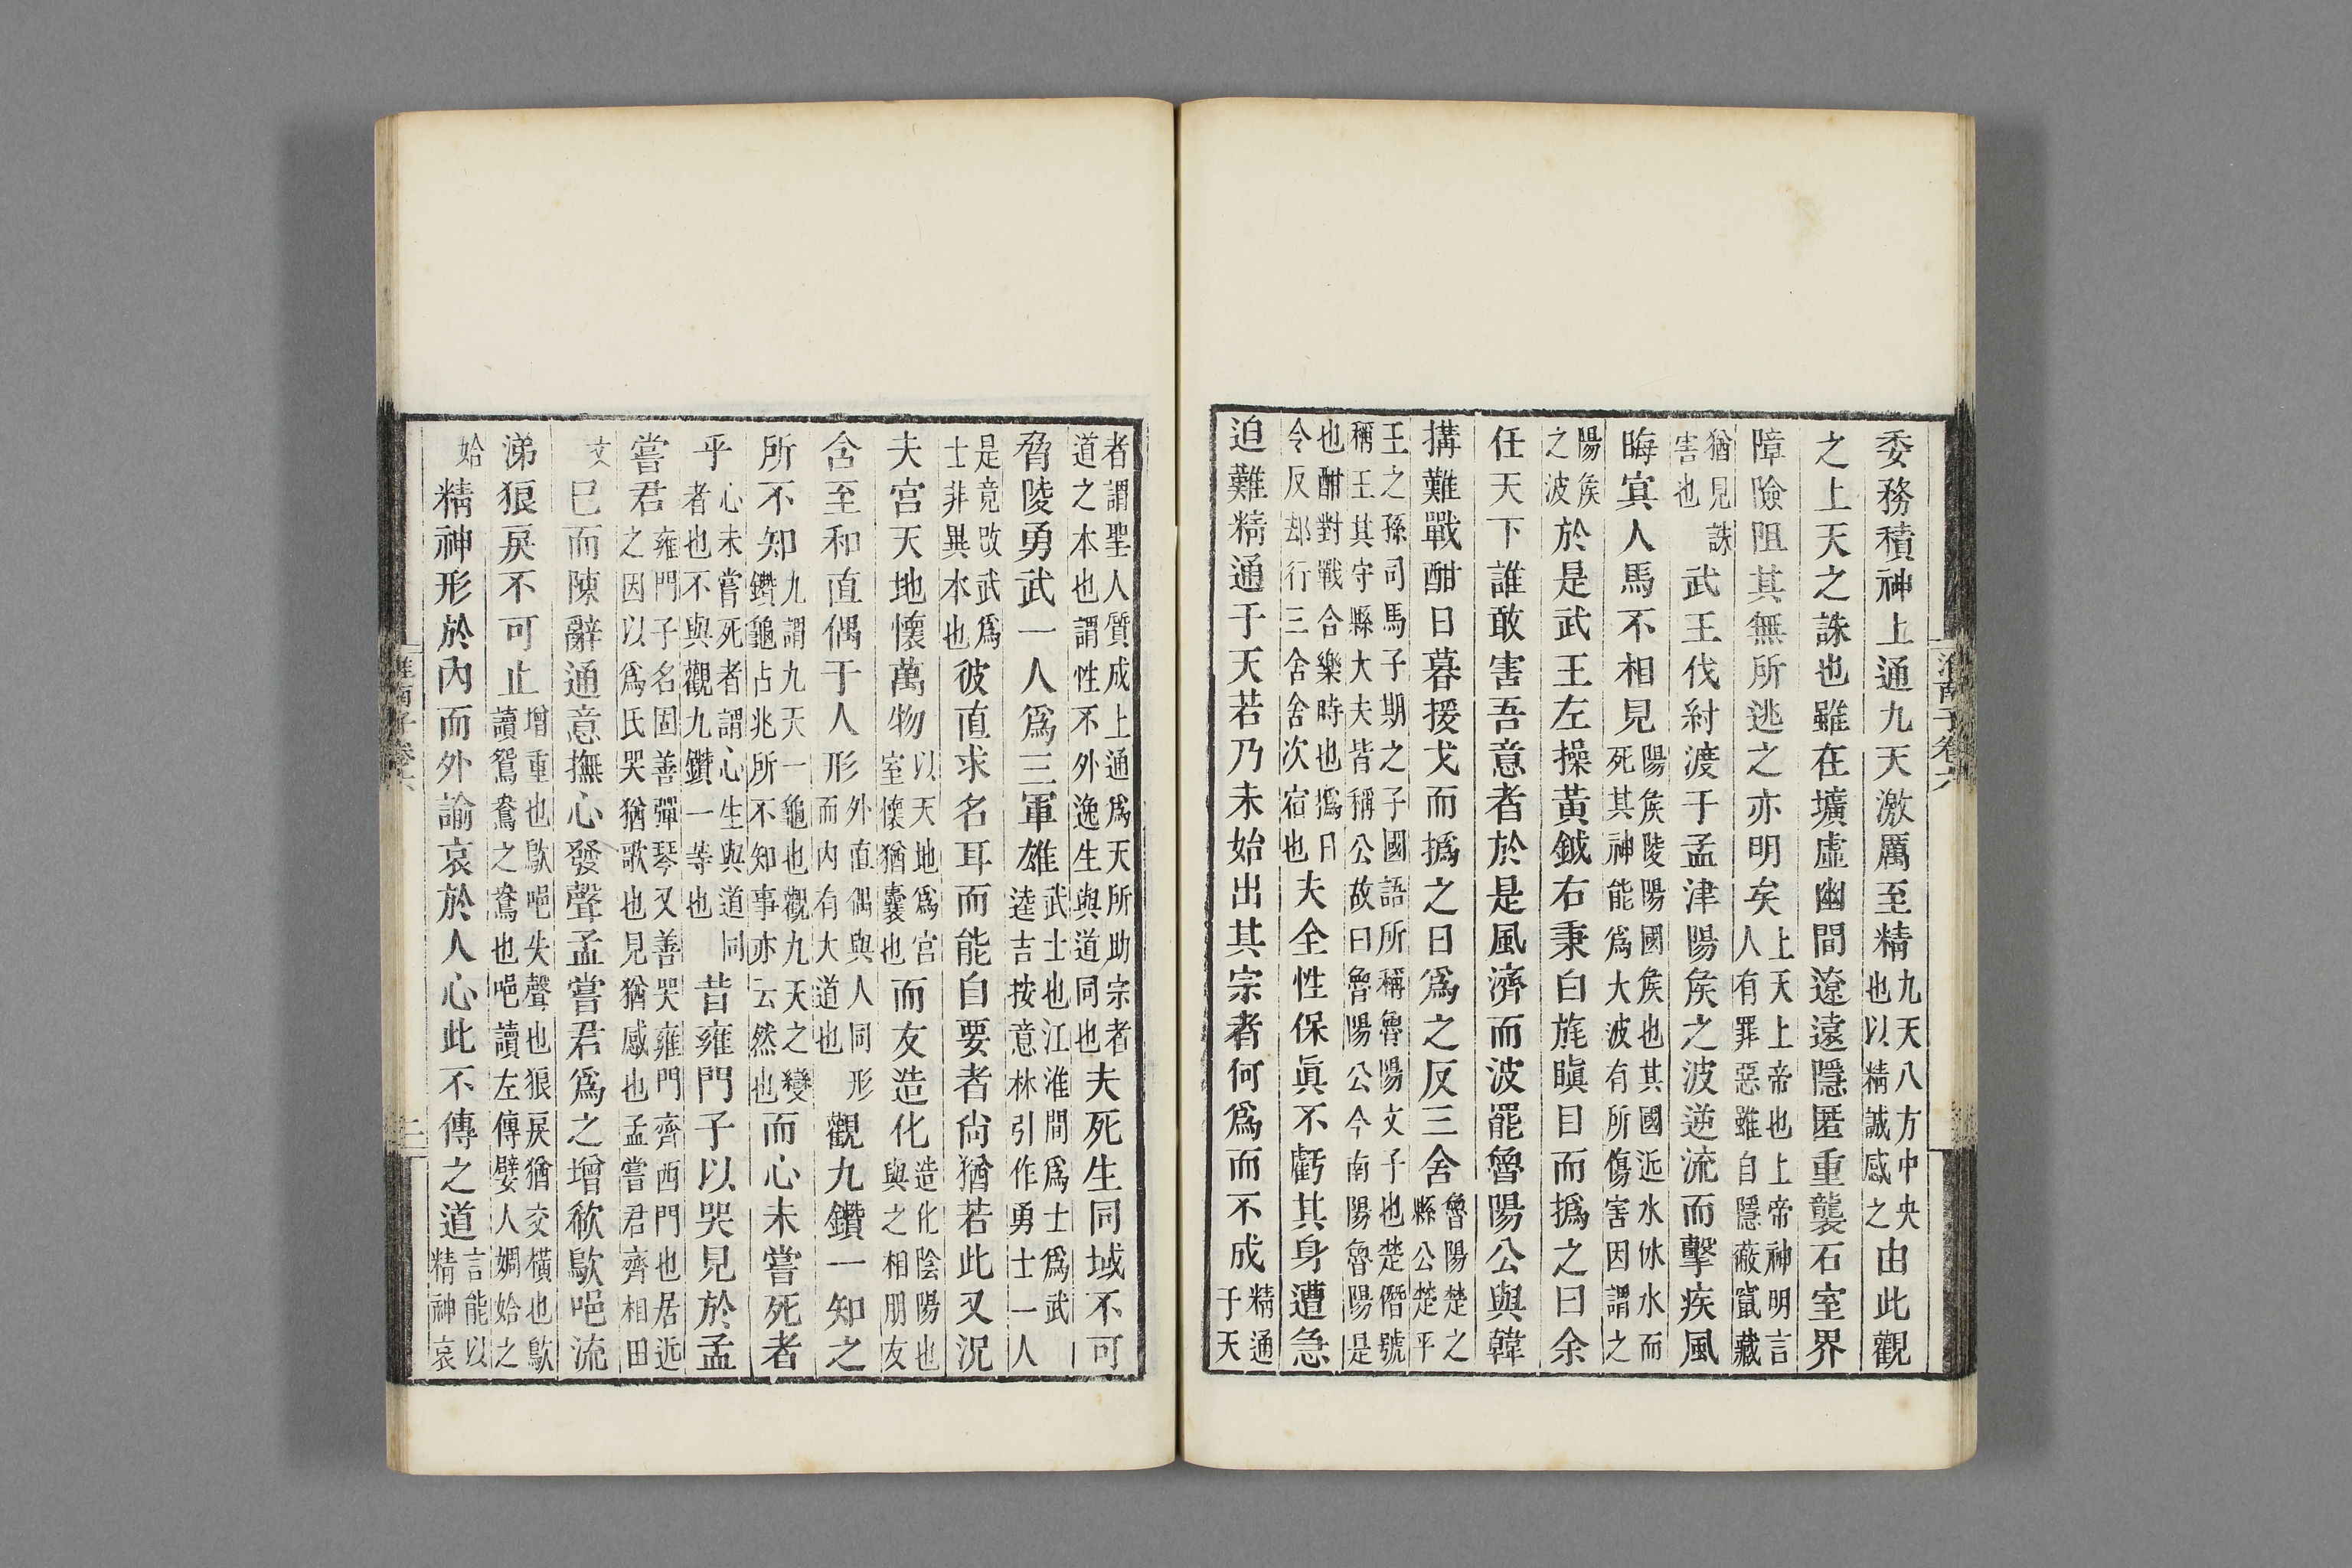 委務積神上通九天激厲至精九天八方中央也以精誠感之由此觀
之上天之誅也雖在壙虛幽閒遼遠隱匿重襲石室界
障險阻其無所逃之亦明矣上天上帝也上帝神明言人有罪惡雖自隱蔽竄藏
猶見誅害也武王伐紂渡于孟津陽矦之波逆流而擊疾風
晦㝠人馬不相見陽矦陵陽國矦也其國近水㳄水而死其神能爲大波有所傷害因謂之
陽矦之波於是武王左操黃鉞右秉白旄瞋目而撝之曰余
任天下誰敢害吾意者於是風濟而波罷魯陽公與韓
搆難戰酣日暮援戈而撝之日爲之反三舍魯陽楚之縣公楚平
王之孫司馬子期之子國語所稱魯陽文子也楚僭號稱王其守縣大夫皆稱公故曰魯陽公今南陽魯陽是
也酣對戰合樂時也撝日令反却行三舍舍次宿也夫全性保眞不虧其身遭急
迫難精通于天若乃未始出其宗者何爲而不成精通于天
者謂聖人質成上通爲天所助宗者道之本也謂性不外逸生與道同也夫死生同域不可
脅陵勇武一人爲三軍雄武士也江淮間爲士爲武逵吉按意林引作勇士一人
是竟改武爲士非異本也彼直求名耳而能自要者尙猶若此又況
夫宮天地懷萬物以天地爲宮室懷猶囊也而友造化造化陰陽也與之相朋友
含至和直偶于人形外直偶與人同形而內有大道也觀九鑽一知之
所不知九謂九天一龜也觀九天之變鑽龜占兆所不知事亦云然也而心未嘗死者
乎心未嘗死者謂心生與道同者也不與觀九鑽一等也昔雍門子以哭見於孟
嘗君雍門子名固善彈琴又善哭雍門齊西門也居近之因以爲氏哭猶歌也見猶感也孟嘗君齊相田
文巳而陳辭通意撫心發聲孟嘗君爲之增欷歍唈流
涕狼戾不可止增重也歍唈失聲也狼戾猶交橫也歍讀鴛鴦之鴦也唈讀左傳嬖人婤姶之
姶精神形於內而外諭哀於人心此不傳之道言能以精神哀
淮南子卷六
淮南子卷六
二